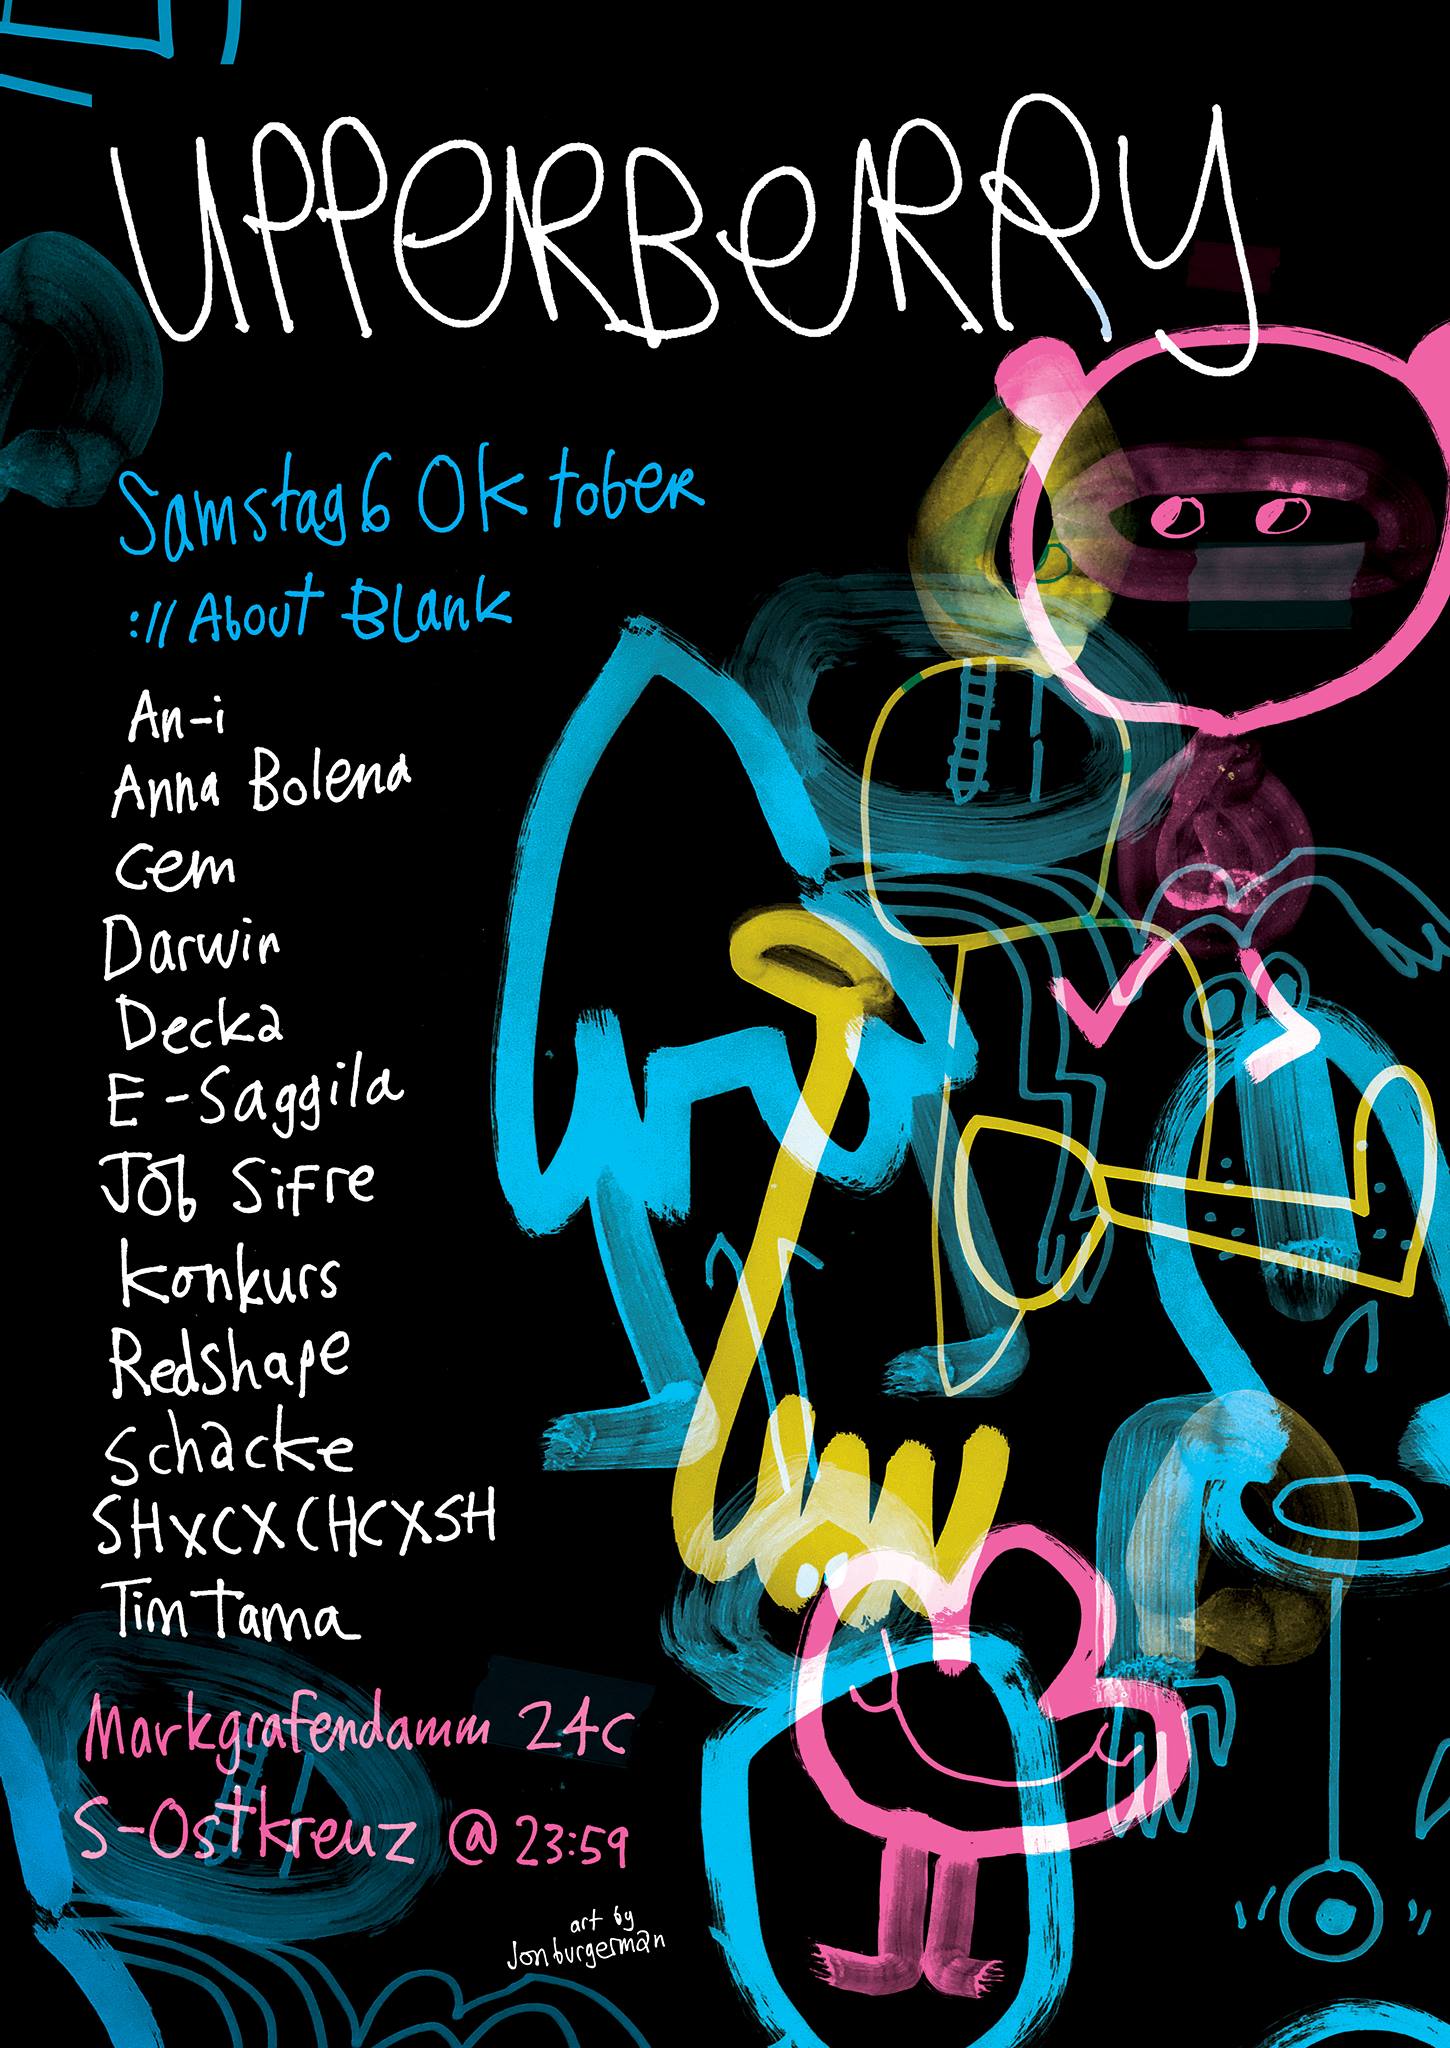 UPPERBERRY
Samstag 6 Oktober
:// About Blank
An-i
Anna Bolena
cem
Darwin
Decka
E-Saggila
Job Sifre
Konkurs
Redshape
Schacke
SHXCXCHCXSH
Tim Tama
Markgrafendamm 24c
S-Ostkreuz @ 23:59
art by
Jon burgerman